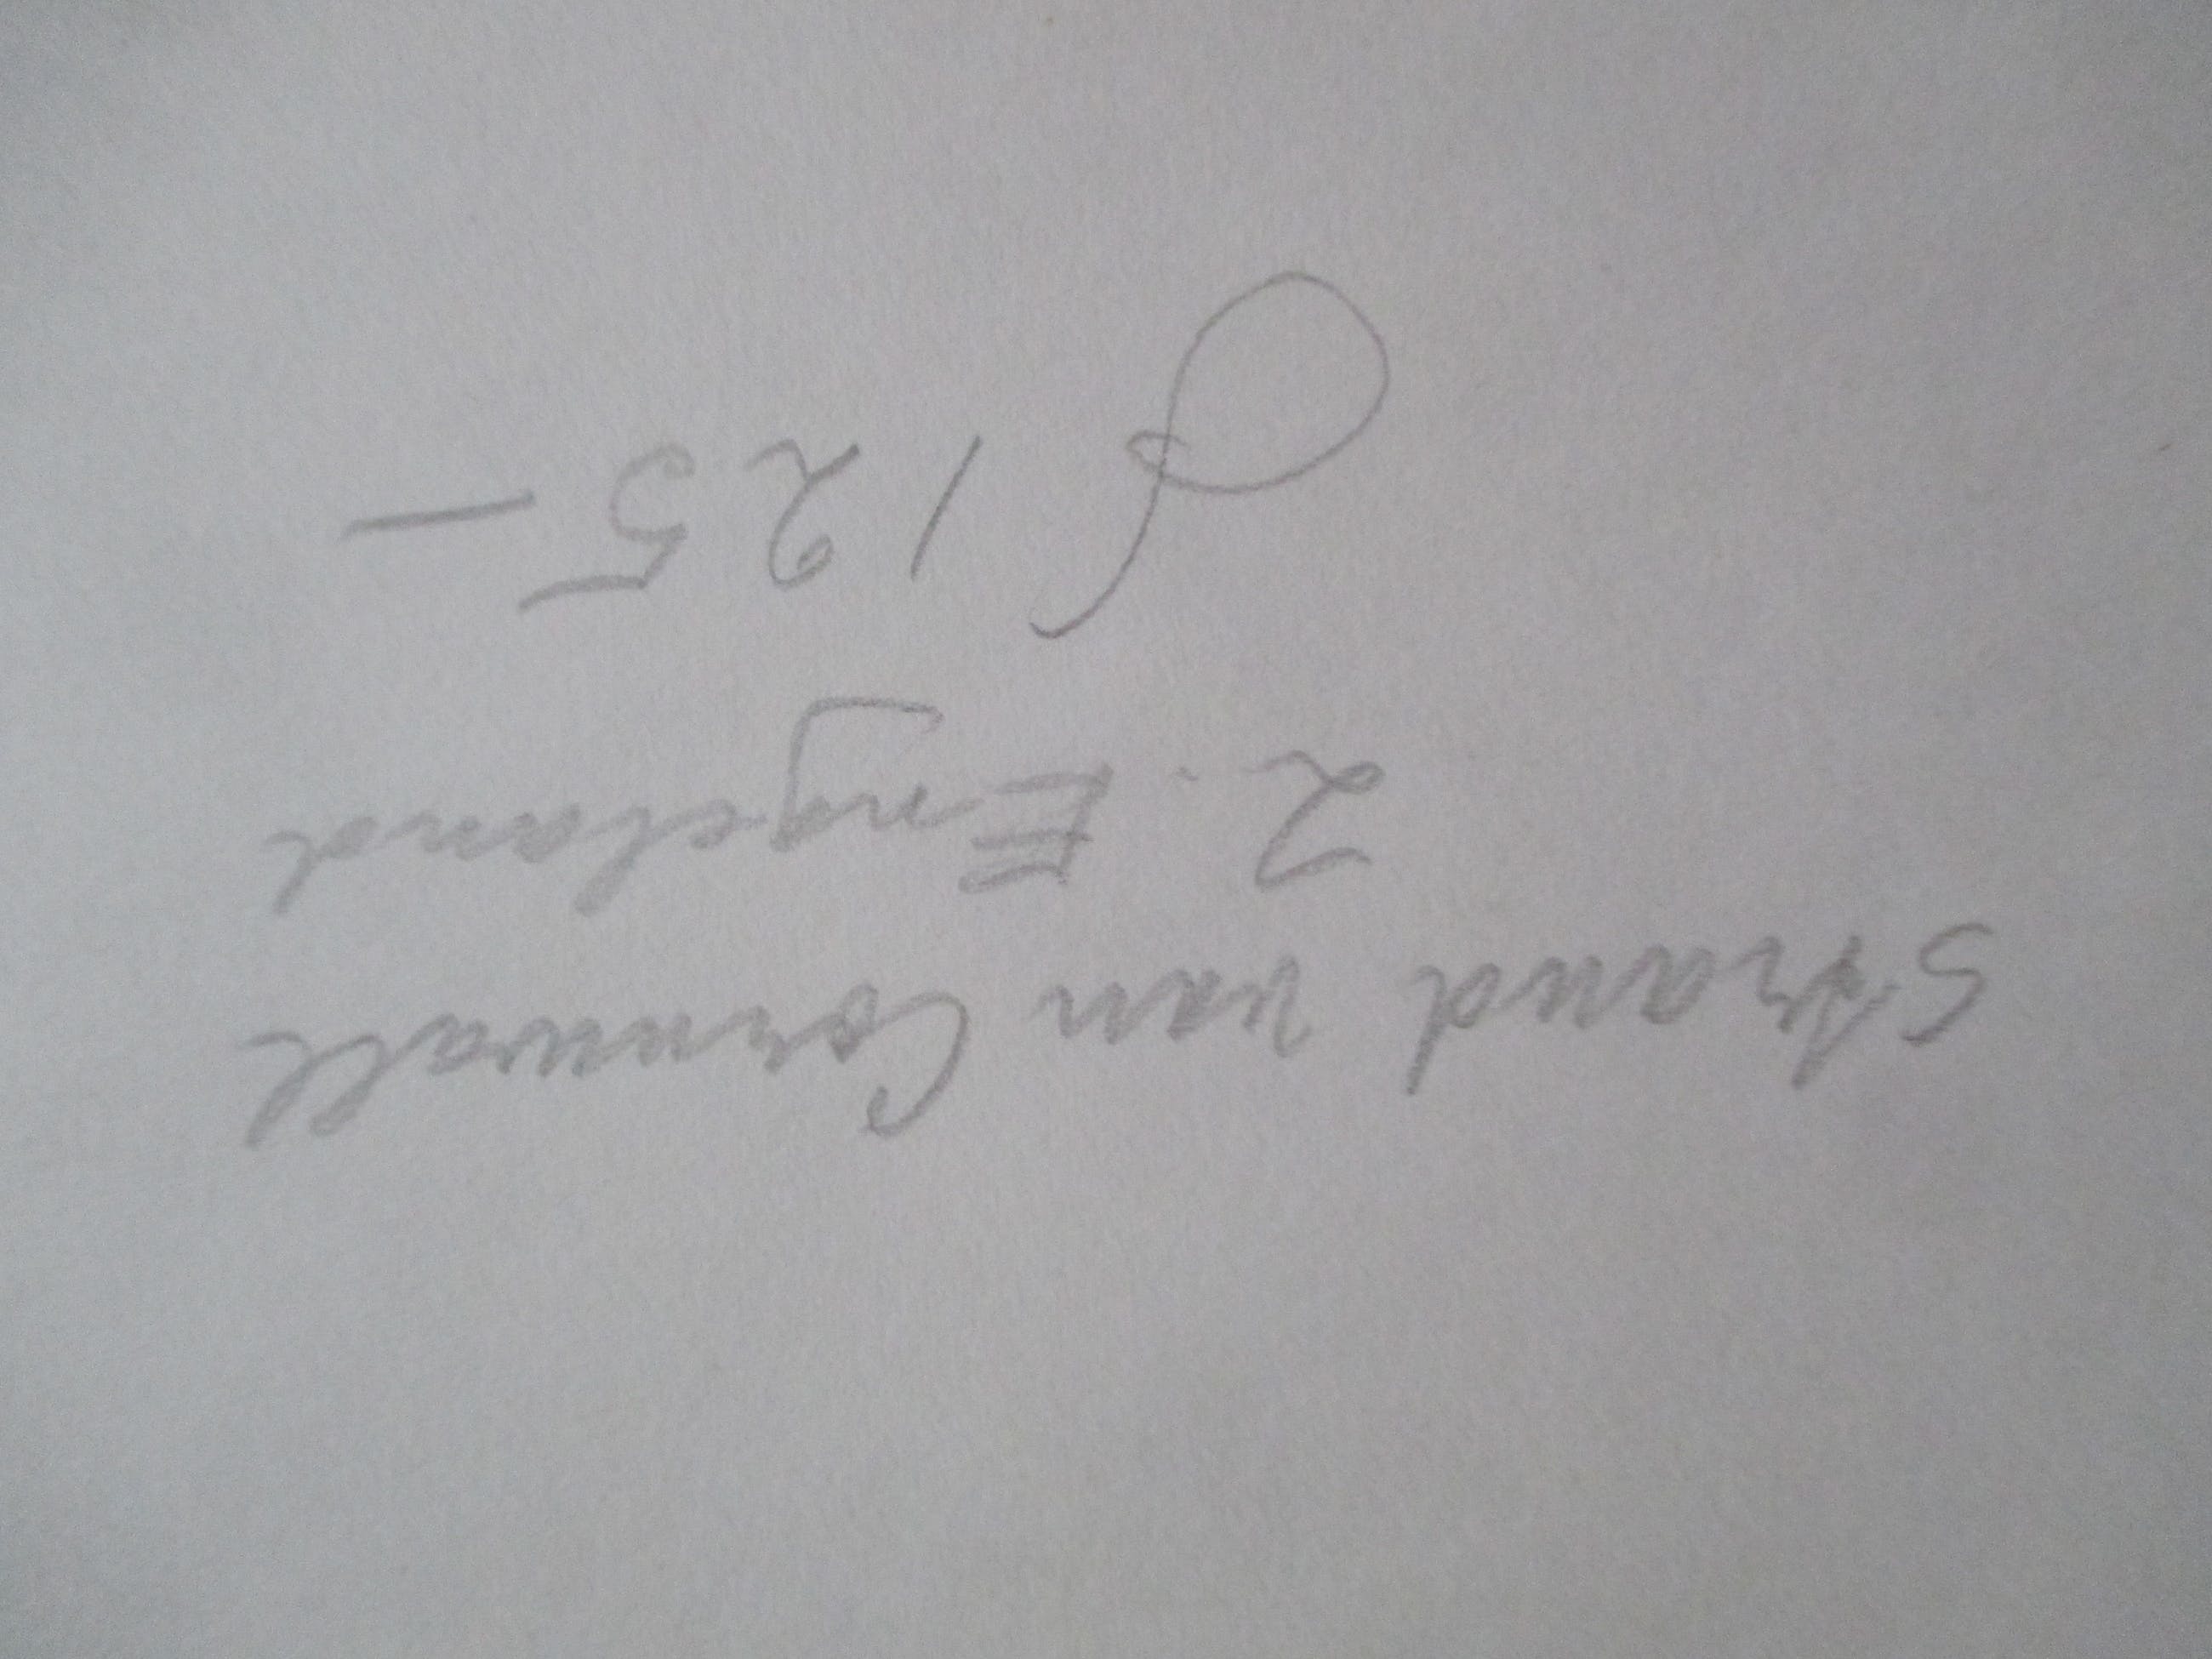 Strand van Cornwall
Z. Engeland
ƒ 125 —